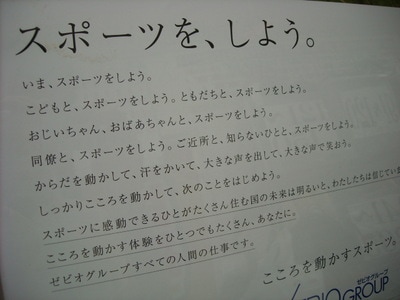 スポーツを、しよう。
いま、スポーツをしよう。
こどもと、スポーツをしよう。ともだちと、スポーツをしよう。
おじいちゃん、おばあちゃんと、スポーツをしよう。
同僚と、スポーツをしよう。ご近所と、知らないひとと、スポーツをしよう。
からだを動かして、汗をかいて、大きな声を出して、大きな声で笑おう。
しっかりこころを動かして、次のことをはじめよう。
スポーツに感動できるひとがたくさん住む国の未来は明るいと、わたしたちは信じていま
こころを動かす体験をひとつでもたくさん、あなたに。
ゼビオグループすべての人間の仕事です。
こころを動かすスポーツ。
ゼビオグループ
XEBIO GROUP